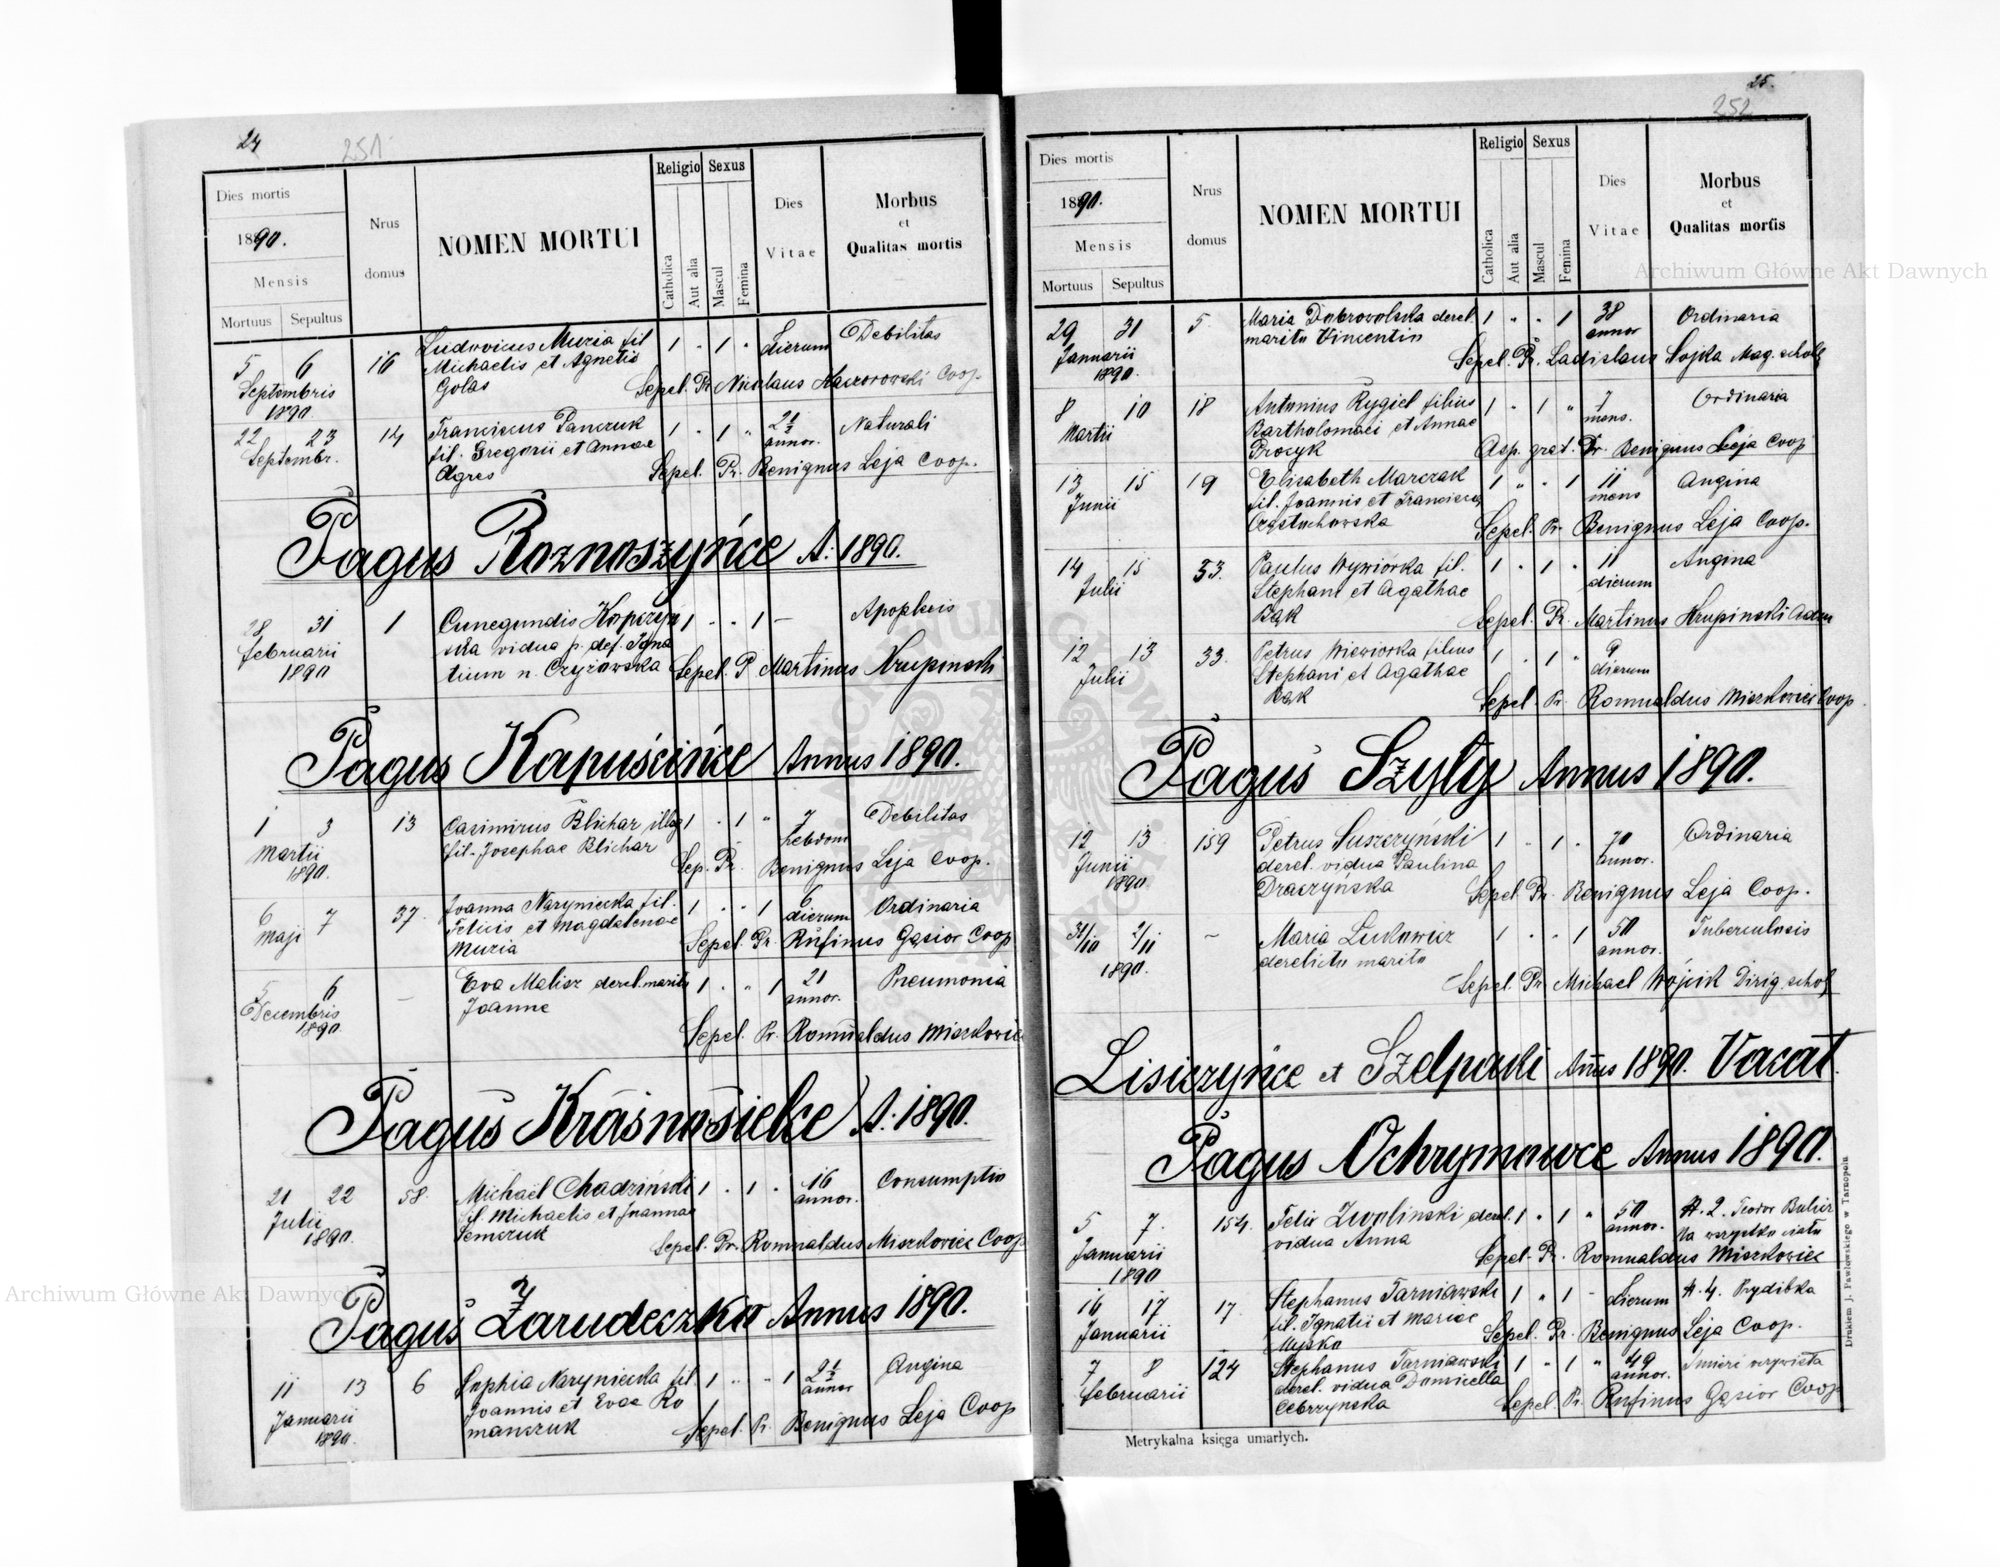 24
251
Dies mortis
1890.
Mensis
Mortuus Sepultus
Nrus
domus
NOMEN MORTUI
Religio
Catholica
Aut alia
Sexus
Mascul
Femina
Dies
Vitae
Morbus
et
Qualitas mortis
5 6 16 Ludovicus Muzia fil 1 " 1 " dierum Debilitas
Septembris Michaelis et Agnetis
1890. Golas Sepel. Pr. Nicolaus Kaczorowski Coop.
22 23 14 Franciscus Panczuk 1 " 1 " 2½ annor. Naturali
Septembr. fil. Gregorii et Annae
Agres Sepel. Pr. Benignus Leja Coop.
Pagus Roznoszyńce A: 1890.
28 31 1 Cunegundis Kopczyń 1 " " 1 — Apoplexis
Februarii ska vidua p. def. Igna
1890 tium n. Czyżowska Sepel. P Martinus Krupinski
Pagus Kapuścińce Annus 1890.
1 3 13 Casimirus Blichar illeg 1 " 1 " 7 hebdom Debilitas
Martii fil. Josephae Blichar
1890. Sep. Pr. Benignus Leja Coop.
6 7 37. Joanna Naryniecka fil. 1 " " 1 6 dierum Ordinaria
Maji Felicis et Magdalenae
Muzia Sepel. Pr. Rufinus Gąsior Coop
5 6 — Eva Malisz derel. marito 1 " " 1 21 annor. Pneumonia
Decembris Joanne
1890. Sepel. Pr. Romualdus Miszkowicz
Pagus Krasnosielce A. 1890.
21 22 58. Michael Chadziński 1 " 1 " 16 annor. Consumptio
Julii fil. Michaelis et Joannae
1890. Semczuk Sepel. Pr. Romualdus Miszkowicz Coop
Pagus Zarudeczko Annus 1890.
11 13 6 Sophia Naryniecka fil. 1 " " 1 2½ annor Angina
Januarii Joannis et Evae Ro
1890. manczuk Sepel. Pr. Benignus Leja Coop
25.
252
Dies mortis
1890.
Mensis
Mortuus Sepultus
Nrus
domus
NOMEN MORTUI
Religio
Catholica
Aut alia
Sexus
Mascul
Femina
Dies
Vitae
Morbus
et
Qualitas mortis
29 31 5. Maria Dobrowolska derel. 1 " " 1 38 annor Ordinaria
Januarii marito Vincentio
1890. Sepel. Pr. Ladislaus Sojka Mag. schol
8 10 18 Antonius Rygiel filius 1 " 1 " 7 mens. Ordinaria
Martii Bartholomaei et Annae
Procyk Asp. grat. Pr. Benignus Leja Coop
13 15 19 Elisabeth Marczak 1 " " 1 11 mens Angina
Junii fil. Joannis et Francisca
Częstochowska Sepel. Pr. Benignus Leja Coop.
14 15 33. Paulus Wywiórka fil. 1 " 1 " 11 dierum Angina
Julii Stephani et Agathae
Bąk Sepel. Pr. Martinus Krupinski Adm
12 13 33. Petrus Wiewiorka filius 1 " 1 " 9 dierum
Julii Stephani et Agathae
Bąk Sepel. Pr. Romualdus Miszkowicz Coop.
Pagus Szyły Annus 1890.
12 13 159 Petrus Suszczyński 1 " 1 " 70 annor. Ordinaria
Junii derel. vidua Paulina
1890. Draczyńska Sepel. Pr. Benignus Leja Coop.
31/10 2/11 — Maria Lukowicz 1 " " 1 50 annor. Tuberculosis
1890. derelicto marito
Sepel. Pr. Michael Wójcik Dirig. schol
Lisiczyńce et Szelpaki Anus 1890. Vacat.
Pagus Ochrymowce Annus 1890.
5 7. 154. Felix Zwolinski derel. 1 " 1 " 50 annor.
Januarii vidua Anna
1890 Sepel. Pr. Romualdus Miszkowicz
16 17 17. Stephanus Tarniawski 1 " 1 - dierum
Januarii fil. Ignatii et Mariae
Sepel. Pr. Benignus Leja Coop.
7 8 124 Stephanus Tarniawski 1 " 1 " 49 annor.
Februarii derel. vidua Domicella
Cebrzyńska Sepel Pr. Rufinus Gąsior Coop
Metrykalna księga umarłych.
Drukiem J. Pawłowskiego w Tarnopolu
Archiwum Główne Akt Dawnych
Archiwum Główne Akt Dawnych